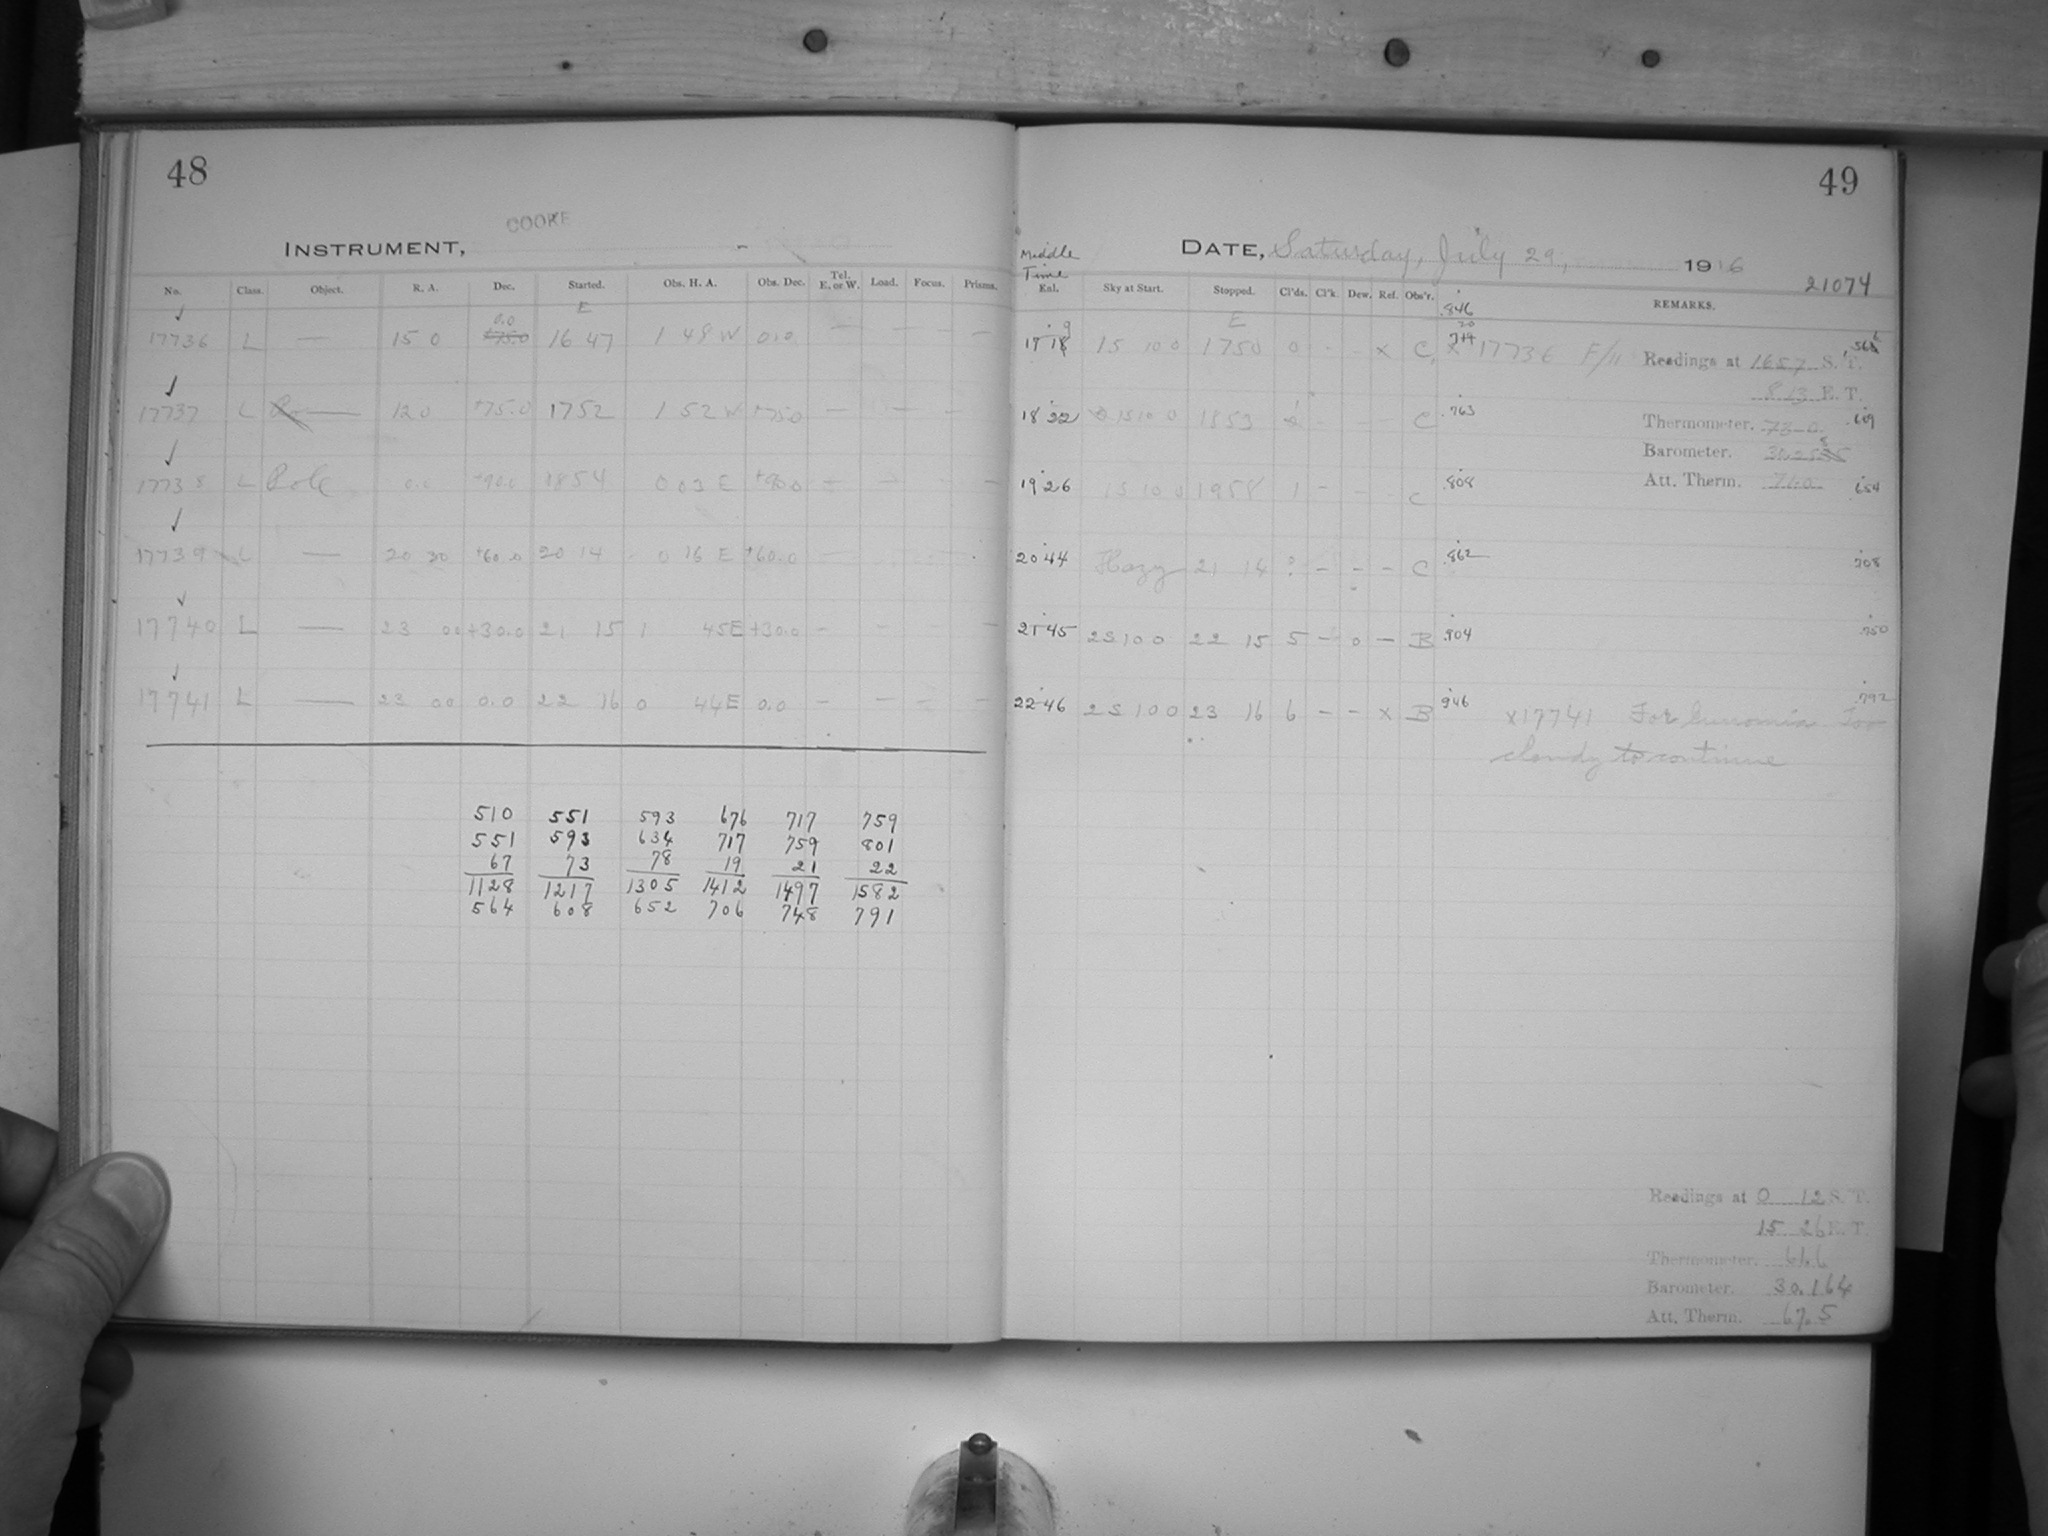 48
COOKE
INSTRUMENT,
No. Class. Object. R. A. Dec. Started. Obs. H. A. Obs. Dec. Tel. E. or W. Load. Focus. Prisms.
E
0.0
17736 L — 15 0 16 47 1 48 W 0.0 — — — —
17737 L — 12 0 +75.0 1752 1 52 W +75.0 — — — —
17738 L Pole 0.0 +90.0 1854 0 03 E +90.0 — — — —
17739 L — 20 30 +60.0 20 14 0 16 E +60.0
17740 L — 23 00 +30.0 21 15 1 45E +30.0 — — — —
17741 L — 23 00 0.0 22 16 0 44E 0.0 — — — —
510 551 593 676 717 759
551 593 634 717 759 801
67 73 78 19 21 22
1128 1217 1305 1412 1497 1582
564 608 652 706 748 791
49
DATE, Saturday, July 29, 1916
21074
Middle Time
Enl. Sky at Start. Stopped. Cl'ds. Cl'k. Dew. Ref. Obs'r. REMARKS.
.846
E
17 19 1S 10 0 1750 0 - - x C x 17736 F/11
Readings at 1657 S. T.
8 13 E. T.
18 22 1S 10 0 1853 - - - C .763
Thermometer. 73.0 .609
Barometer.
19 26 1S 10 0 1958 1 - - - C .808
Att. Therm. .654
20 44 Hazy 21 14 ? - - - C .862 .708
21 45 2S 10 0 22 15 5 - 0 - B .904 .750
22 46 2S 10 0 23 16 6 - - x B 946 x17741 For Eunomia Too .792
cloudy to continue
Readings at 0 12 S. T.
15 26 E. T.
Thermometer. 61.6
Barometer. 30.164
Att. Therm. 67.5